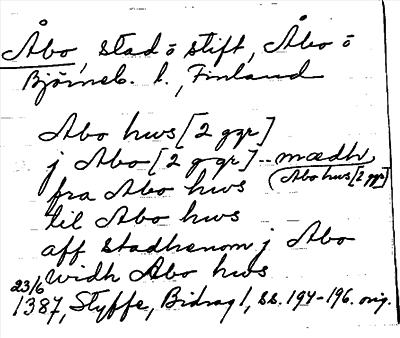 Åbo, stad o stift, Åbo o
Björneb. l., Finland
Abo hws [2 ggr]
j Abo [2 ggr] -- mædh
(Abo hws [2 ggr]
fra Abo hws
til Abo hws
aff stadhenom j Abo
widh Abo hws
23/6
1387, Styffe, Bidrag 1, ss. 194-196. orig.